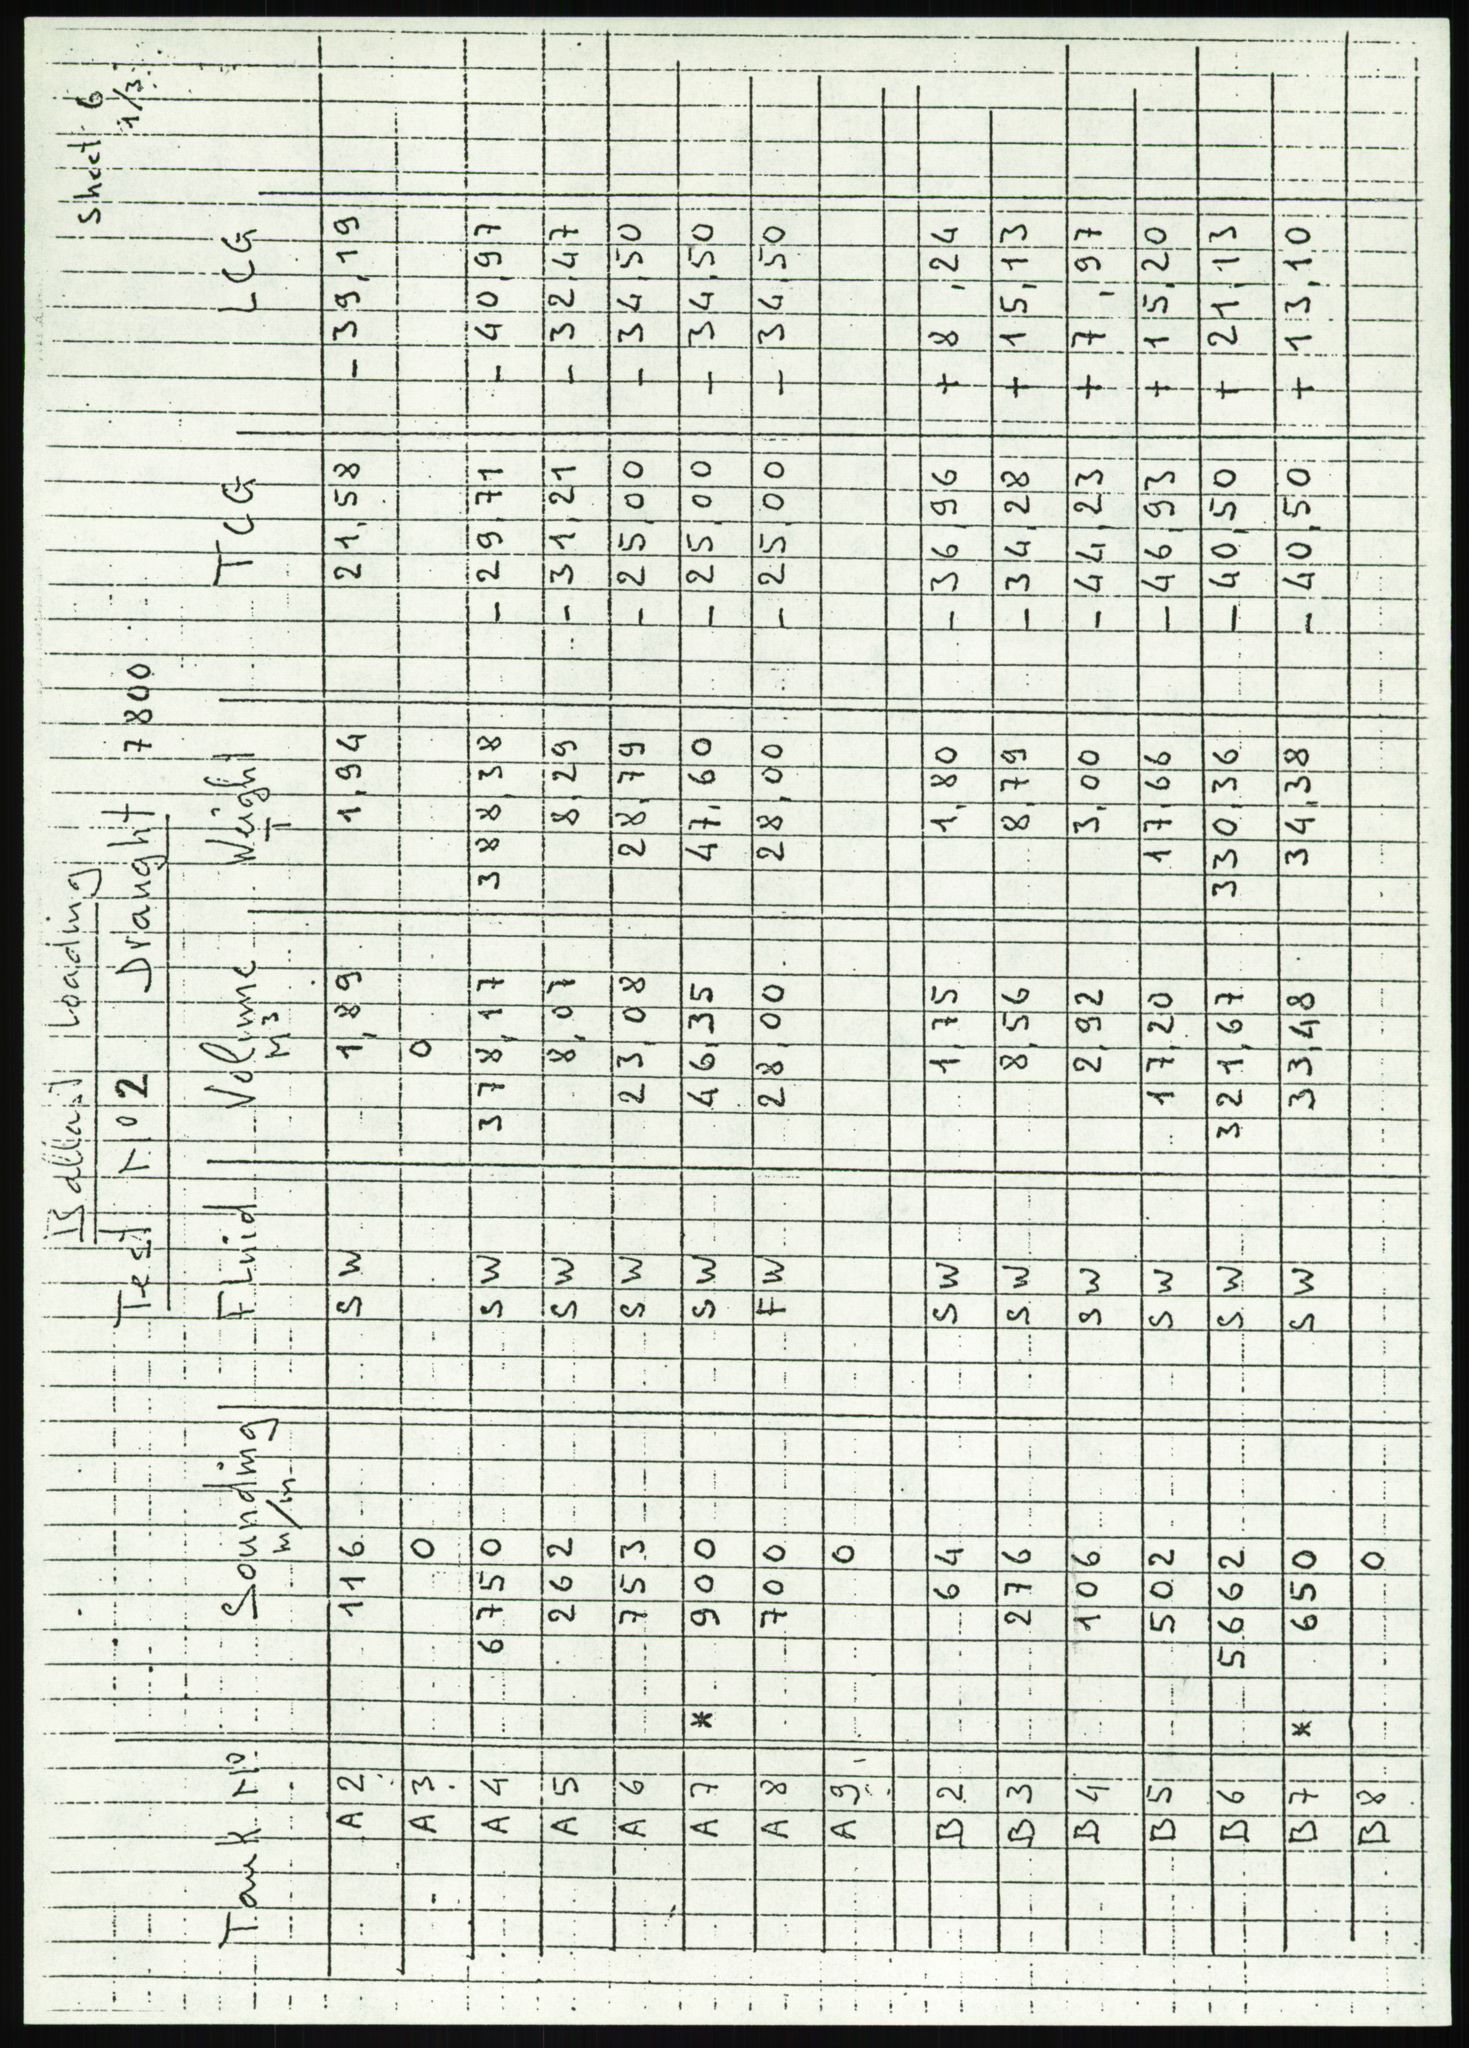 Ballast Loading
sheet 6
1/3
Test No 2 Draught 7800
Tank No Sounding Fluid Volume Weight TCG LCG
m/m M3 T
A2 116 SW 1,89 1,94 21,58 - 39,19
A3 0 0
A4 6750 SW 378,17 388,38 - 29,71 - 40,97
A5 262 SW 8,07 8,29 - 31,21 - 32,47
A6 753 SW 23,08 28,79 - 25,00 - 34,50
A7 * 900 SW 46,35 47,60 - 25,00 - 34,50
A8 700 FW 28,00 28,00 - 25,00 - 34,50
A9 0
B2 64 SW 1,75 1,80 - 36,96 + 8,24
B3 276 SW 8,56 8,79 - 34,28 + 15,13
B4 106 SW 2,92 3,00 - 44,23 + 7,97
B5 502 SW 17,20 17,66 - 46,93 + 15,20
B6 5662 SW 321,67 330,36 - 40,50 + 21,13
B7 * 650 SW 33,48 34,38 - 40,50 + 13,10
B8 0